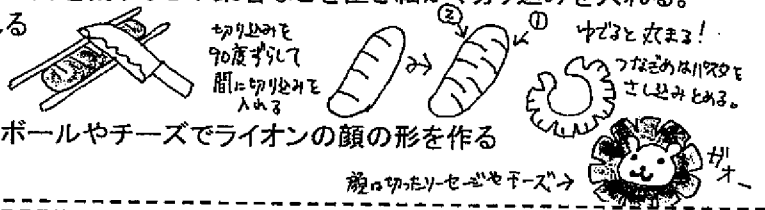 切り込みを入れる。
る
切り込みを
90度ずらして
間に切り込みを
入れる
② ①
ゆでると丸まる!
つなぎめはパスタを
さし込みとめる。
ボールやチーズでライオンの顔の形を作る
顔は切ったソーセージやチーズ→
ガオー